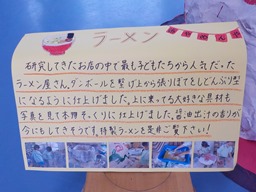 ラーメン
研究してきたお店の中で最も子どもたちから人気だった
ラーメン屋さん。ダンボールを繋げ上から張りぼてをしどんぶり型
になるように仕上げました。上に乗ってる大好きな具材も
写真を見て本物そっくりに仕上げました。醤油出汁の香りが
今にもしてきそうです。特製ラーメンを是非ご賞下さい!